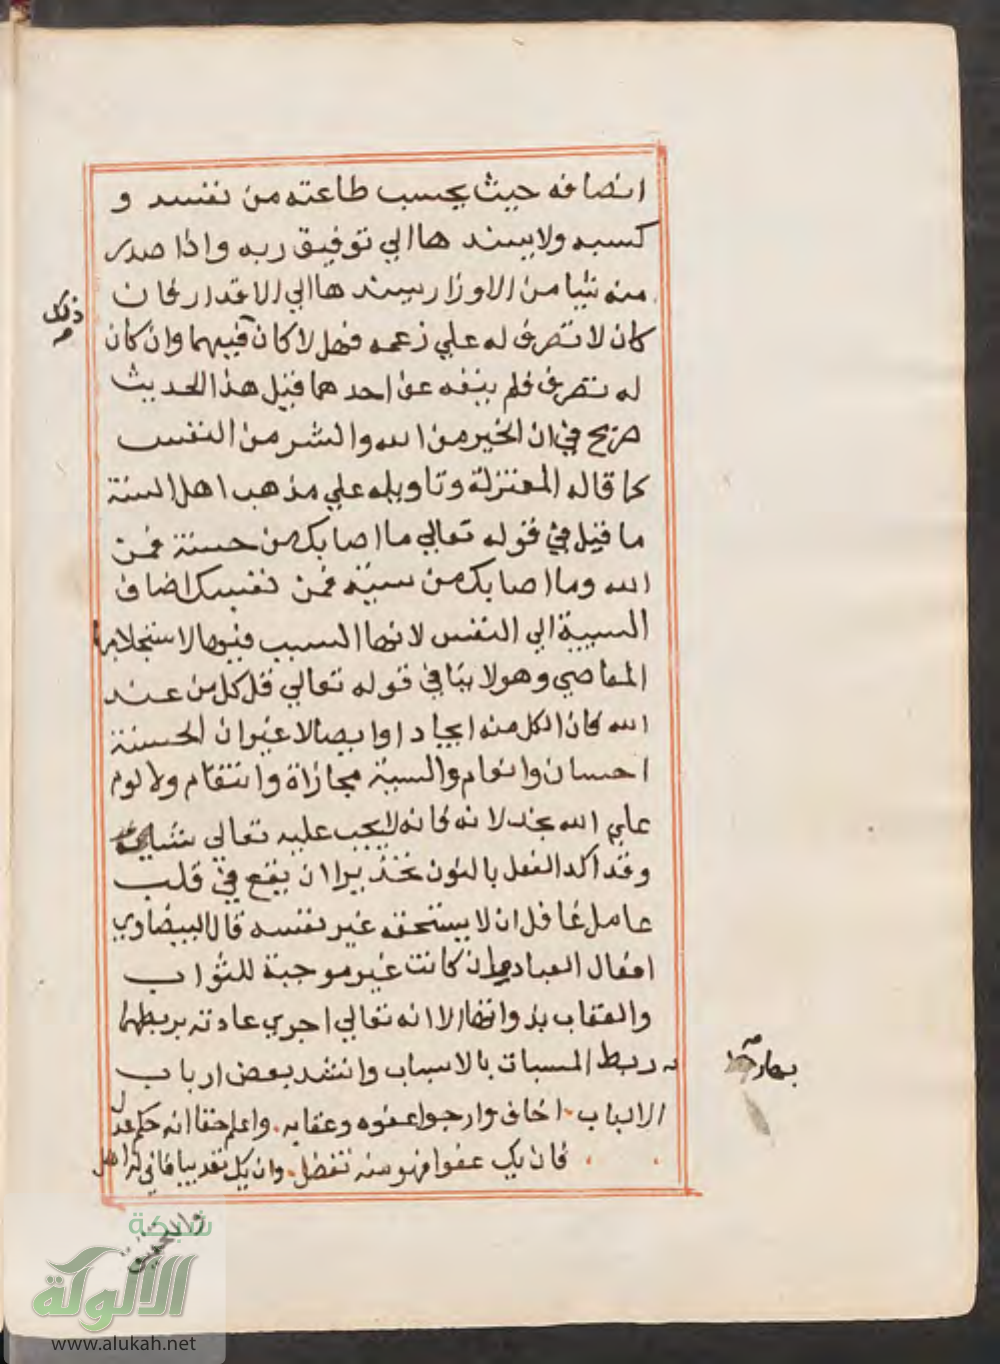 انصافه حيث يحسب طاعته من نفسه و
كسبه ولا يسندها الي توفيق ربه واذا صدر
منه شيا من الاوزار يسندها الي الاقدار فان
ذلك
كان لا تصرف له علي زعمه فهل لا كان فيهما وان كان
له تصرف فلم ينفه عن احدهما قيل هذا الحديث
صريح في ان الخير من الله والشر من النفس
كما قاله المعتزلة وتاويله علي مذهب اهل السنة
ما قيل في قوله تعالي ما اصابك من حسنة فمن
الله وما اصابك من سيئة فمن نفسك اضاف
السيية الي النفس لانها السبب فيها لاستجلابها
المعاصي وهو لا ينافي قوله تعالي قل كل من عند
الله فان الكل منه ايجادا وايصالا غير ان الحسنة
احسان وانعام والسيئة مجازاة وانتقام ولا لوم
علي الله بخذلانه فانه لا يجب عليه تعالي شئ
وقد اكد الفعل بالنون تحذيرا ان يقع في قلب
عامل غافل ان لا يستحقه غير نفسه قال البيضاوي
افعال العباد وان كانت غير موجبة للثواب
والعقاب بذواتها الا انه تعالي اجري عادته بربطها
به ربط المسببات بالاسباب وانشد بعض ارباب
بهما
الالباب اخاف وارجوا عفوه وعقابه واعلم حقا انه حكم عدل
فان يك عفوا فهو منه تفضل وان يكن تعذيبا فاني له اهل
والتحقيق
شبكة
الألوكة
www.alukah.net